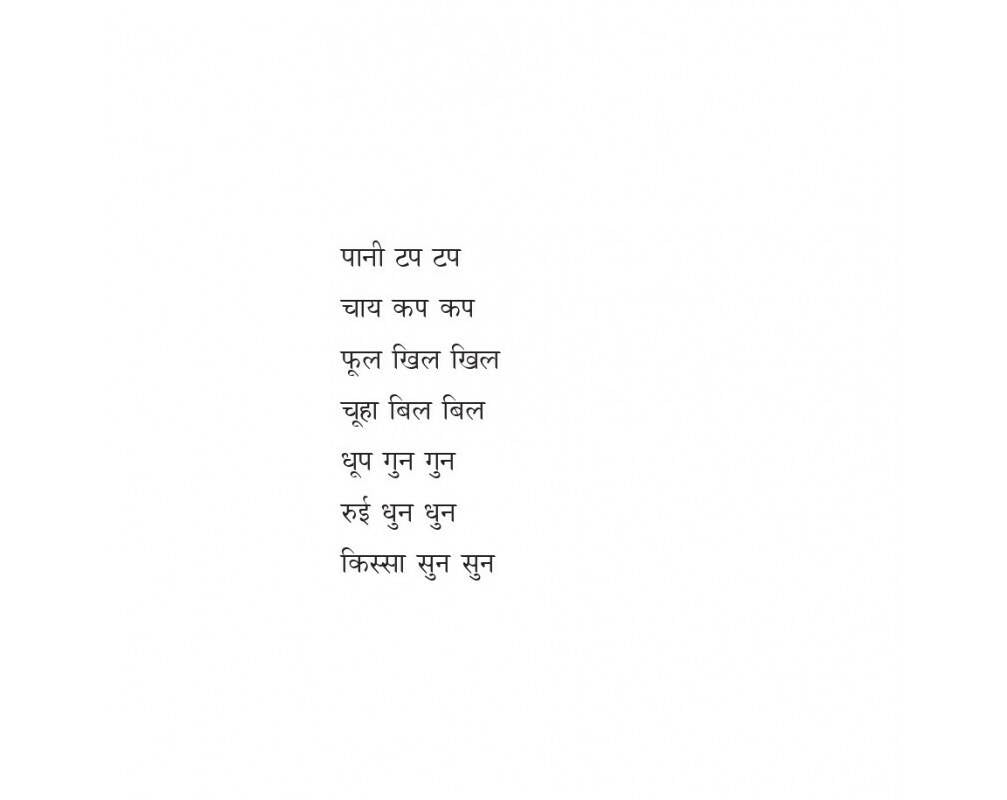 पानी टप टप
चाय कप कप
फूल खिल खिल
चूहा बिल बिल
धूप गुन गुन
रुई धुन धुन
किस्सा सुन सुन